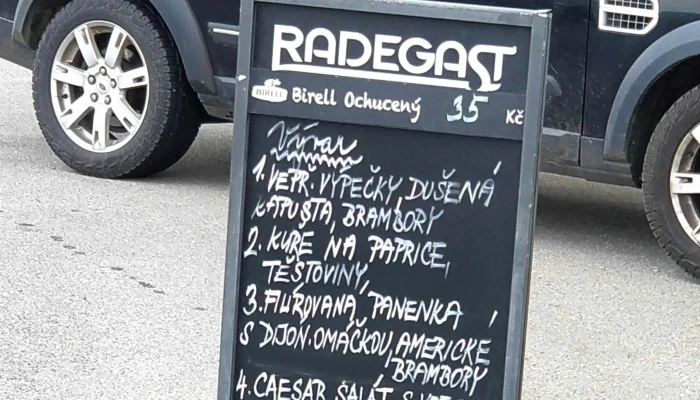 RADEGAST
BIRELL Birell Ochucený 35 Kč
Vývar
1. VEPŘ. VÝPEČKY, DUŠENÁ
KAPUSTA, BRAMBORY
2. KUŘE NA PAPRICE,
TĚSTOVINY,
3. FILÍROVANÁ PANENKA,
S DIJON. OMÁČKOU, AMERICKÉ
BRAMBORY
4. CAESAR SALÁT S